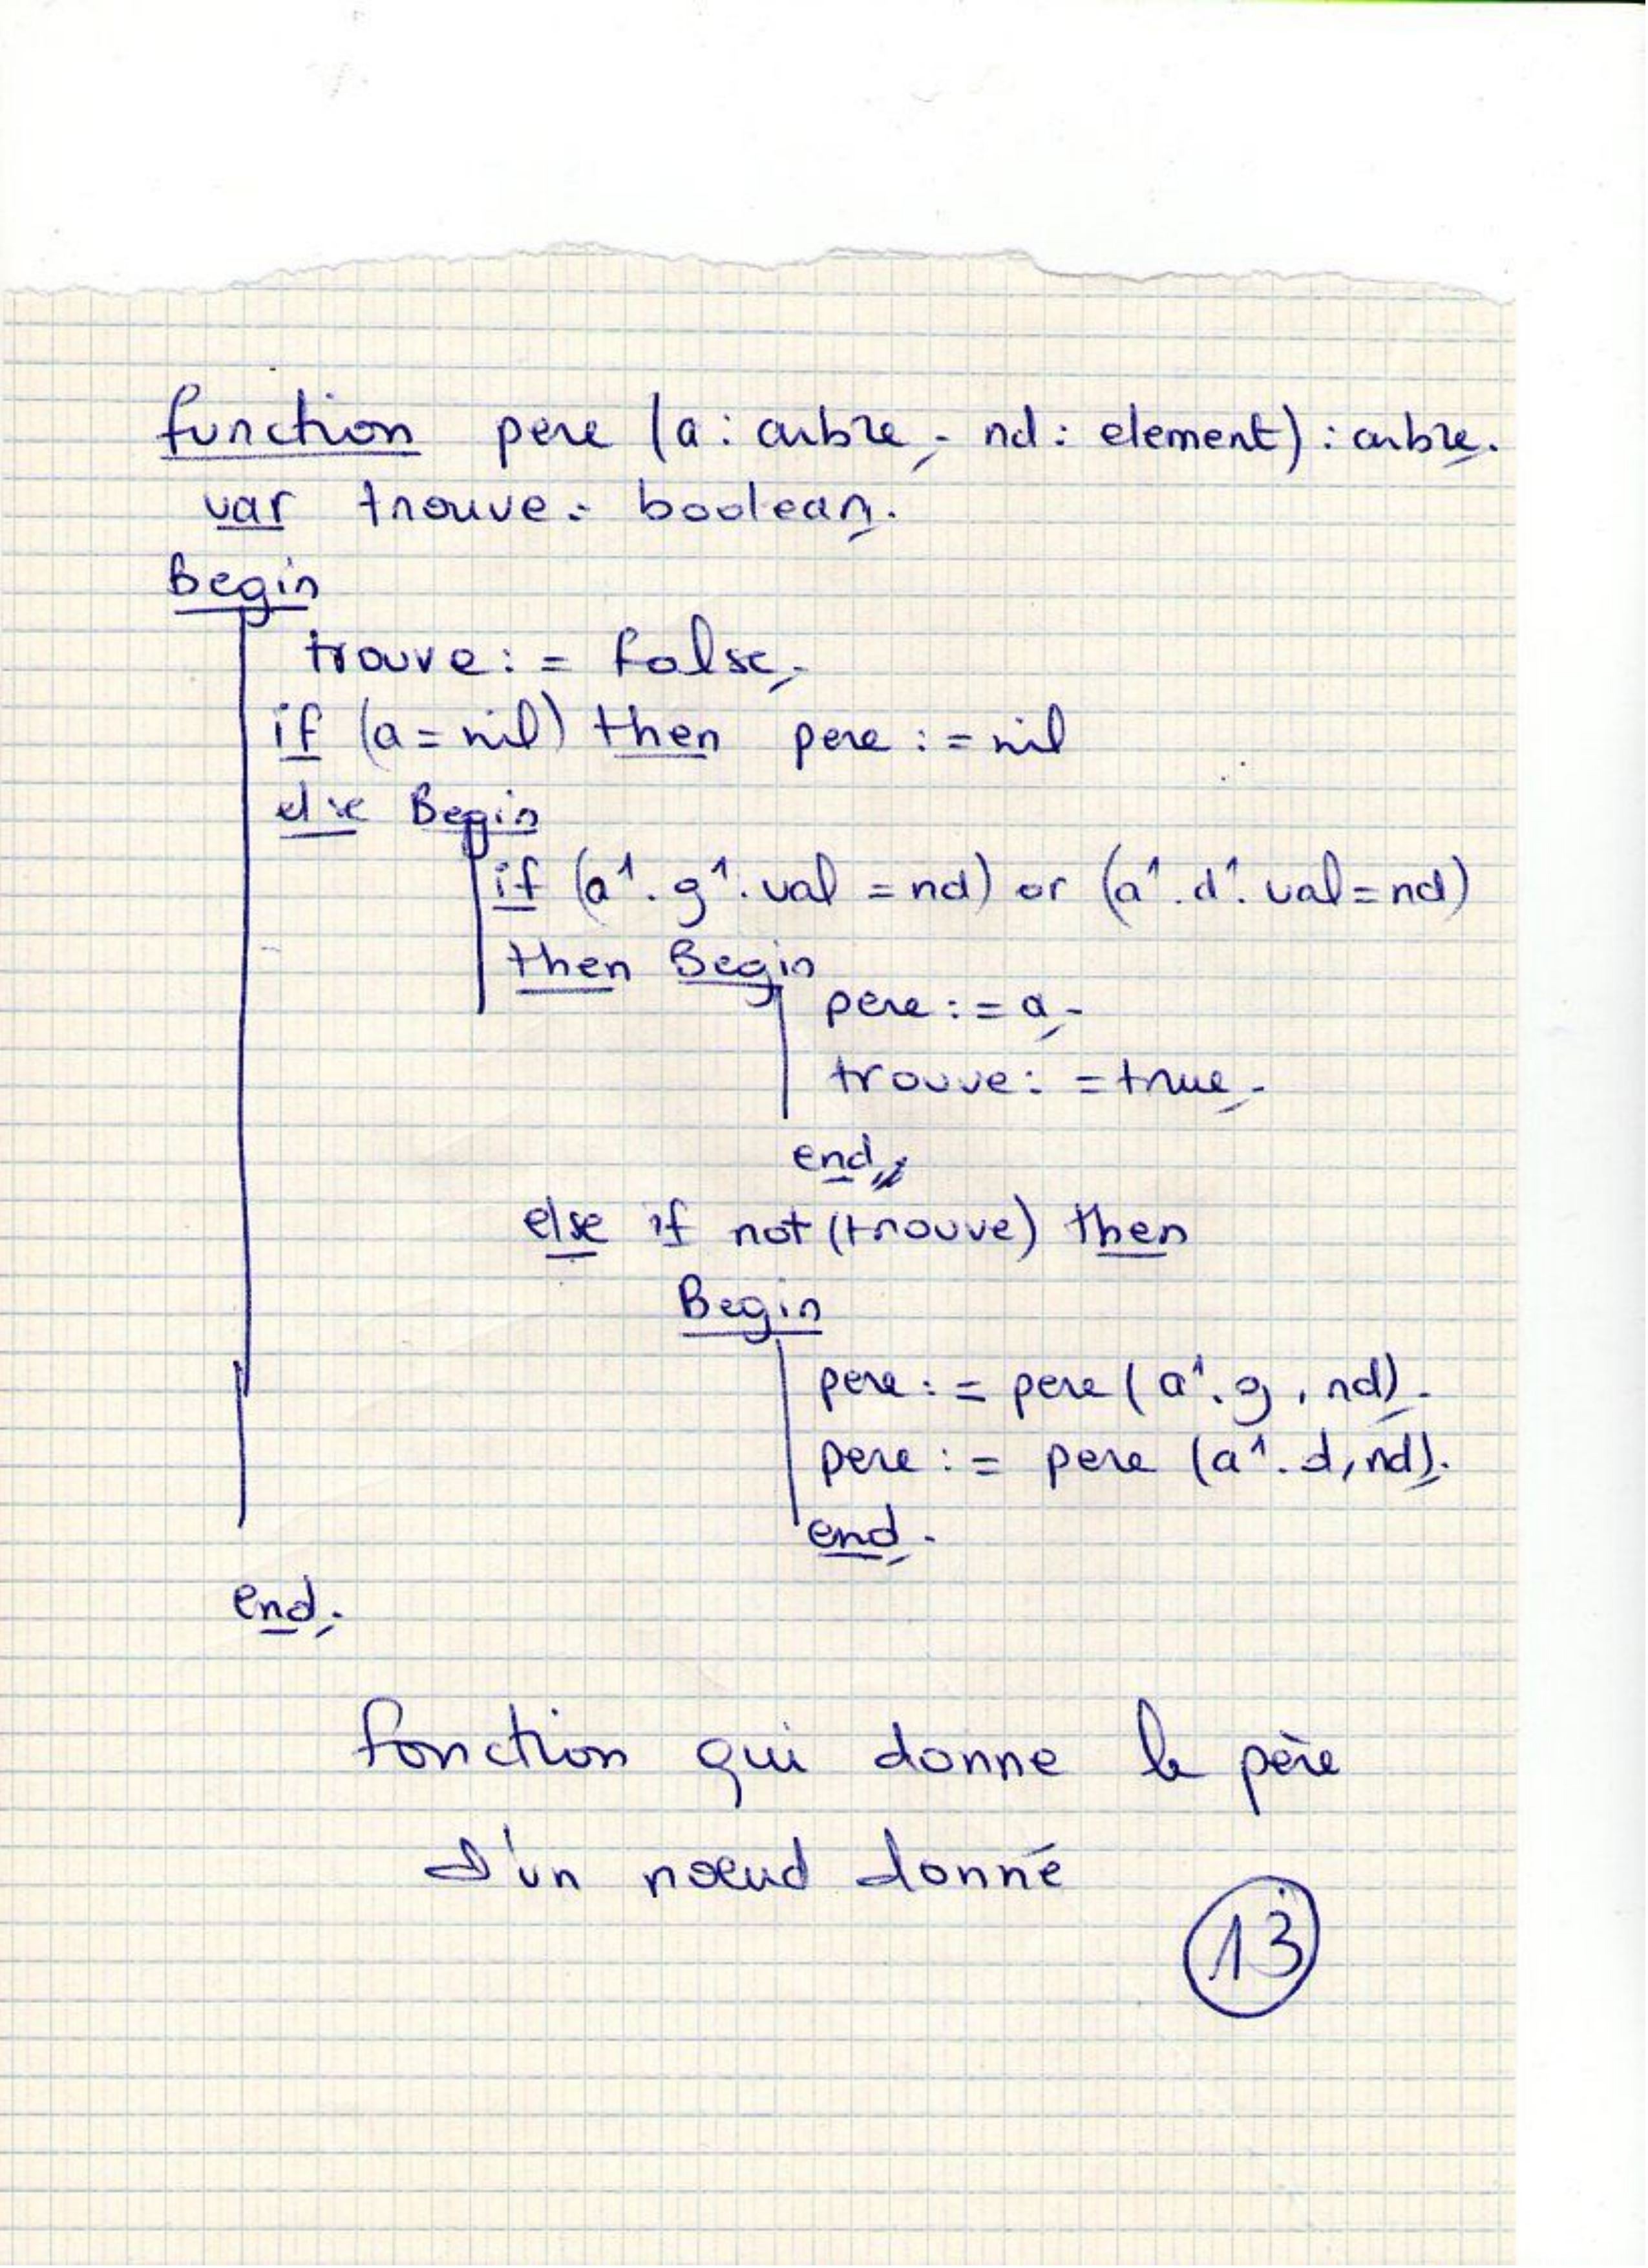 function pere (a: arbre; nd: element): arbre;
var trouve: boolean;
Begin
trouve: = false;
if (a = nil) then pere : = nil
else Begin
if (a↑. g↑. val = nd) or (a↑. d↑. val = nd)
then Begin
pere : = a;
trouve: = true;
end
else if not (trouve) then
Begin
pere : = pere ( a↑. g , nd);
pere : = pere (a↑. d, nd);
end;
end;
fonction qui donne le père
d'un nœud donné
13